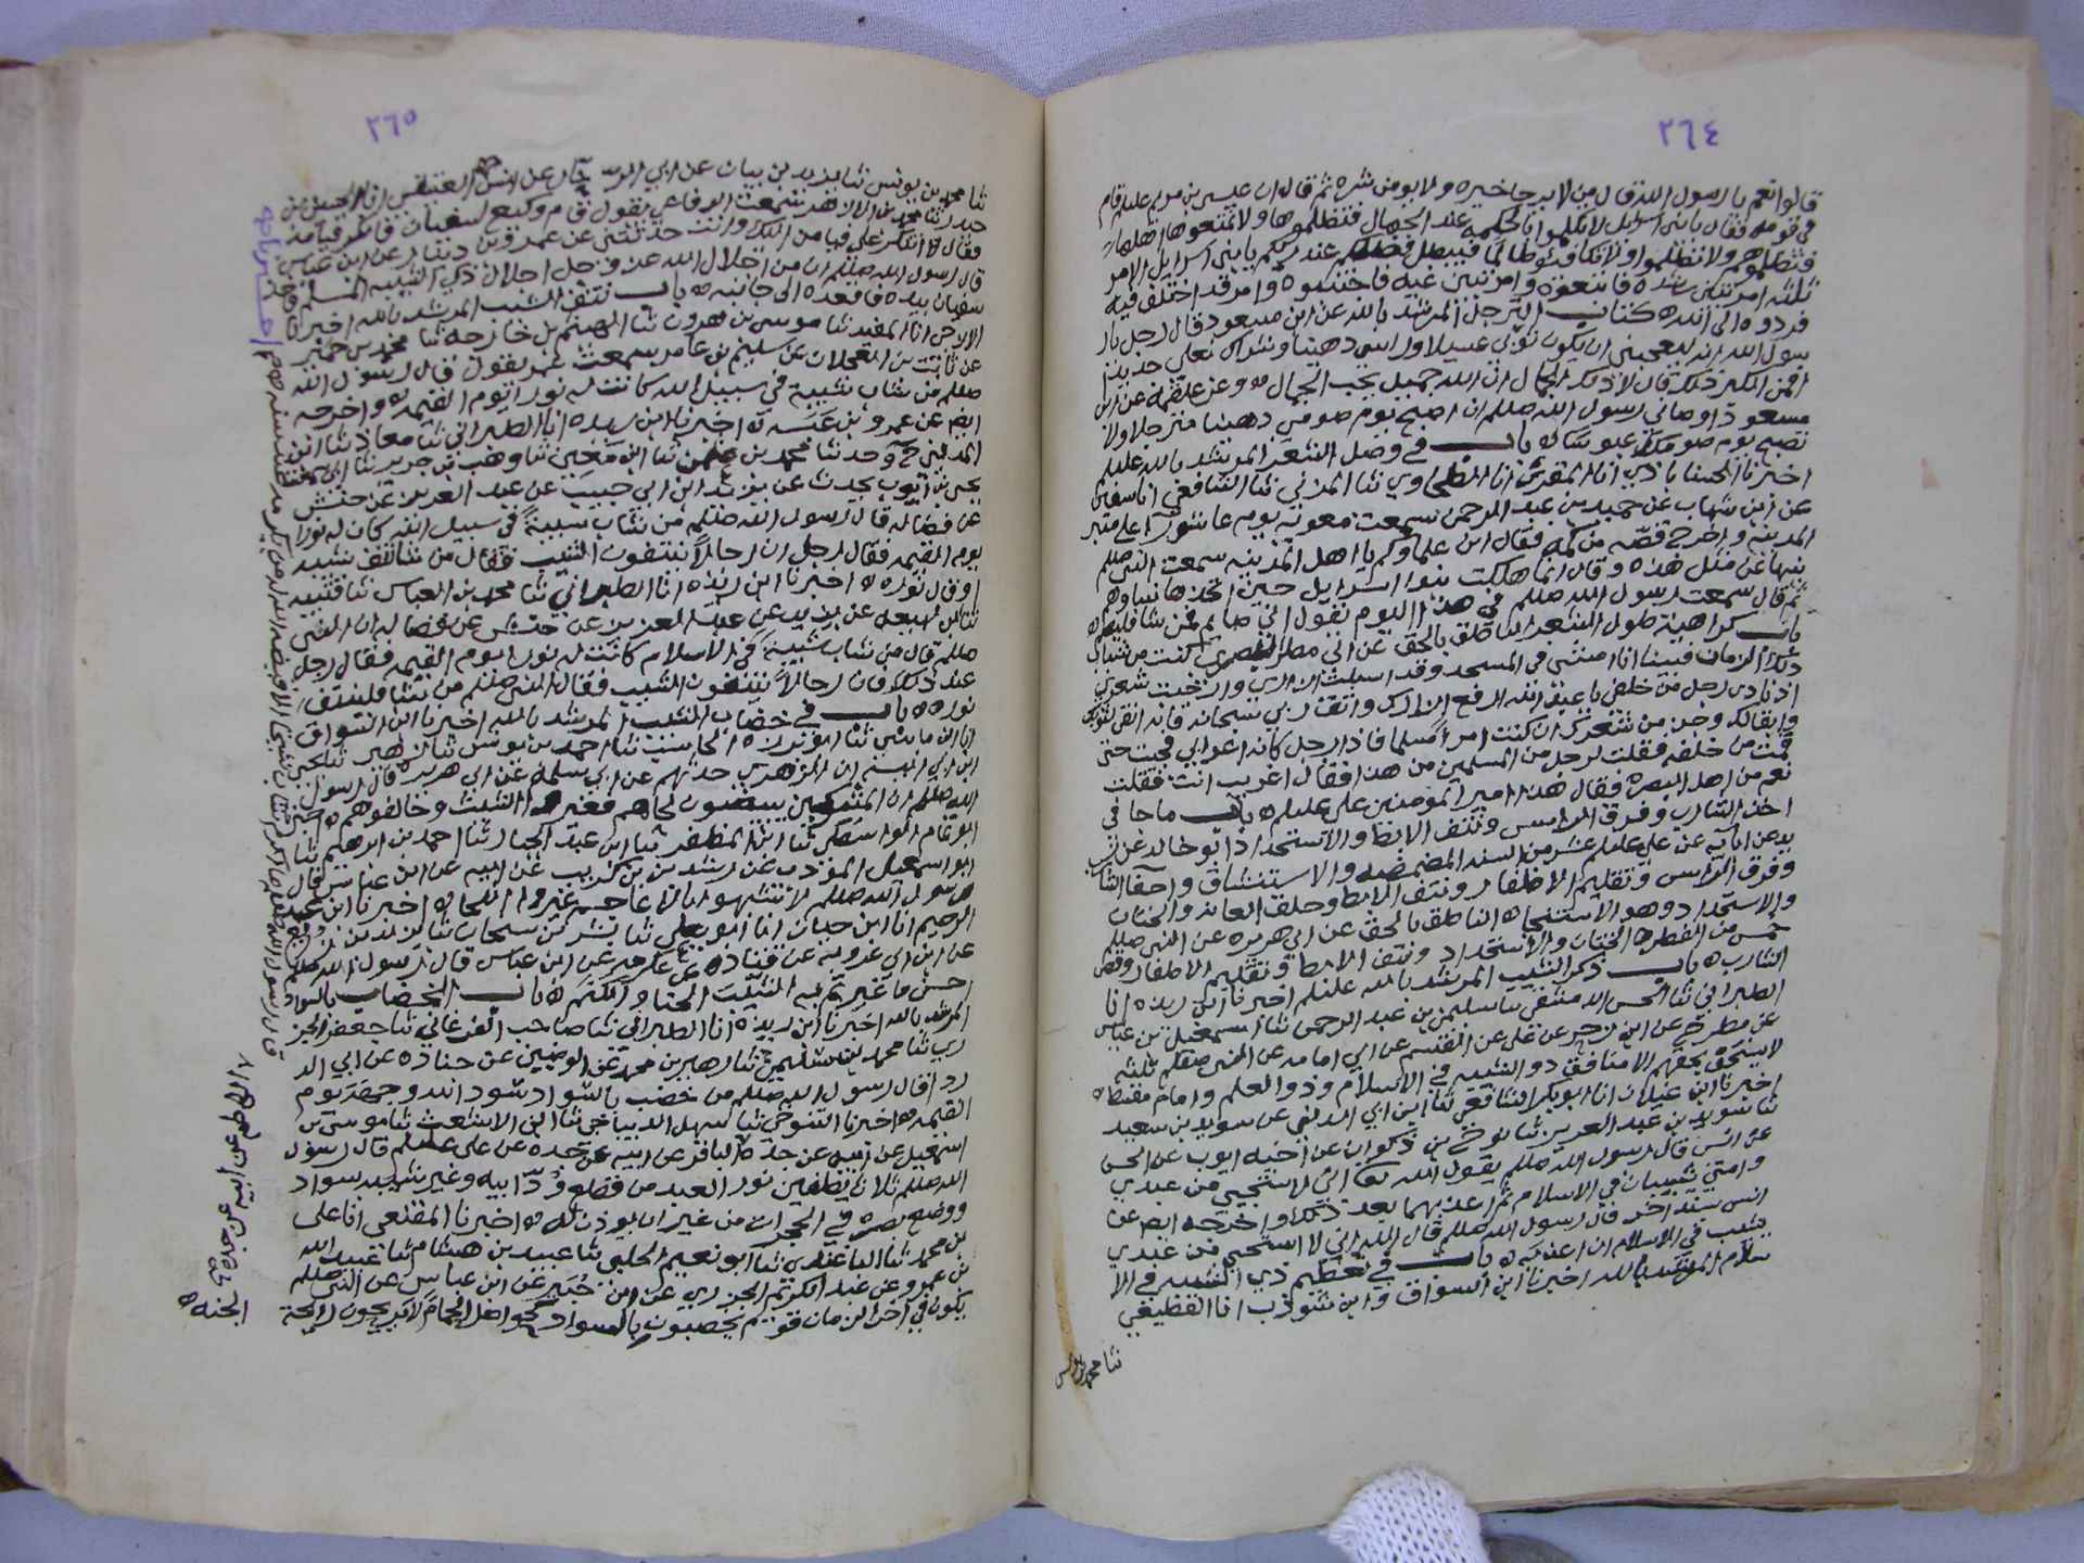 ٢٦٤
قالوا نعم يا رسول الله قال من لا يرجا خيره ولا يومن شره ثم قال ان عيسى بن مريم عليلم قام
في قومه فقال يا بني اسرايل لا تكلموا بالحكمه عند الجهال فتظلموها ولا تمنعوها اهلها
فتظلموهم ولا تظلموا ولا تكافئوا ظالما فيبطل فضلكم عند ربكم يا بني اسرايل الامر
ثلثه امر تبين رشده فاتبعوه وامر تبين غيه فاجتنبوه وامر قد اختلف فيه
فردوه الى الله كتاب الترجل المرشد بالله عن ابن مسعود قال رجل يا ر
سول الله انه ليعجبني ان يكون ثوبي غسيلا وراسي دهينا وشراك نعلي جديدا
افمن الكبر ذلك قال لا ذلك الجمال ان الله جميل يحب الجمال وعن علقمه عن ابن
مسعود اوصاني رسول الله صللم ان اصبح يوم صومي دهينا مترجلا ولا
تصبح يوم صومك عبوسا باب في وصل الشعر المرشد بالله عليلم
اخبرنا الحسنا باذي انا المقري انا الطحاوي ثنا المزني ثنا الشافعي انا سفين
عن ابن شهاب عن حميد بن عبد الرحمن سمعت معويه يوم عاشورا على منبر
المدينه واخرج قصه من كمه فقال اين علماوكم يا اهل المدينه سمعت النبي صللم
ينها عن مثل هذه وقال انما هلكت بنوا اسرايل حين اتخذها نساوهم
ثم قال سمعت رسول الله صللم في هذا اليوم يقول اني صايم فمن شا فليصم
باب كراهية طول الشعر الناطق بالحق عن ابي مطر البصري كنت من شباب
ذلك الزمان فبينا انا امشي في المسجد وقد اسبلت ازاري وارخيت شعري
اذ نادى رجل من خلفي يا عبد الله ارفع ازارك واتق ربي سبحانه فانه انقى لثوبك
وابقا لك وجز من شعرك ان كنت امرا مسلما فاذا رجل كانه اعرابي فجيت حتى
قمت من خلفه فقلت لرجل من المسلمين من هذا فقال اغريب انت فقلت
نعم من اهل البصره فقال هذا امير المومنين علي عليلم باب ما جا في
اخذ الشارب وفرق الراس ونتف الابط والاستحداد ابو خالد عن ز
يد عن ابايه عن علي عليلم عشر من السنه المضمضه والاستنشاق واحفا الشارب
وفرق الراس وتقليم الاظفار ونتف الابط وحلق العانه والختان
والاستحداد وهو الاستنجا الناطق بالحق عن ابي هريره عن النبي صللم
خمس من الفطره الختان والاستحداد ونتف الابط وتقليم الاظفار وقص
الشارب باب ذكر الشيب المرشد بالله عليلم اخبرنا ابن ريذه انا
الطبراني ثنا الحسن بن سليمن بن عبد الرحمن ثنا اسمعيل بن عياش
عن مطرح عن ابن زحر عن علي عن القسم عن ابي امامه عن النبي صللم ثلثه
لا يستخف بحقهم الا منافق ذو الشيبه في الاسلام وذو العلم وامام مقسط
اخبرنا ابن غيلان انا ابو بكر الشافعي ثنا ابن ابي الدنيا عن سويد بن سعيد
ثنا سويد بن عبد العزيز ثنا نوح بن ذكوان عن اخيه ايوب عن الحسن
عن انس قال رسول الله صللم يقول الله تعا اني لاستحيي من عبدي
وامتي يشيبان في الاسلام ثم اعذبهما بعد ذلك واخرجه ايض عن
انس بسند اخر قال رسول الله صللم قال الله اني لا استحيي من عبدي
يشيب في الاسلام ان اعذبه باب في تعظيم ذي الشيبه في الا
سلام المرشد بالله اخبرنا ابن السواق وابن شوذب انا القطيعي
ثنا محمد بن يونس
٢٦٥
ثنا محمد بن يونس ثنا يزيد بن بيان عن ابي الرحال عن انس العتيقي انا الحسين بن
حيدر ثنا محمد بن الازهر سمعت الرفاعي يقول قام وكيع لسفيان فانكر قيامه
فقال لا تنكر علي قيامي اليك وانت حدثتني عن عمرو بن دينار عن ابن عباس
قال رسول الله صللم ان من اجلال الله عز وجل اجلال ذي الشيبه المسلم فاخذ
سفيان بيده فاقعده الى جانبه باب نتف الشيب المرشد بالله اخبرنا
الازجي انا المفيد ثنا موسى بن هرون ثنا الهيثم بن خارجه ثنا محمد بن حمير
عن ثابت بن العجلان عن سليم بن عامر سمعت عمر يقول قال رسول الله
صللم من شاب شيبة في سبيل الله كانت له نورا يوم القيمه واخرجه
ايض عن عمرو بن عبسه اخبرنا ابن ريذه انا الطبراني ثنا معاذ ثنا ابن
المديني ح وحدثنا محمد بن علي ثنا ابن معين ثنا وهب بن جرير ثنا ابي سمعت
يحيى بن ايوب يحدث عن يزيد ابن ابي حبيب عن عبد العزيز عن حنش
عن فضاله قال رسول الله صللم من شاب شيبة في سبيل الله كان له نورا
يوم القيمه فقال رجل ان رجالا ينتفون الشيب فقال من شا نتف شيبه
او قال نوره اخبرنا ابن ريذه انا الطبراني ثنا محمد بن العباس ثنا قتيبه
ثنا ابن لهيعه عن يزيد عن عبد العزيز عن حنش عن فضاله ان النبي
صللم قال من شاب شيبة في الاسلام كانت له نورا يوم القيمه فقال رجل
عند ذلك فان رجالا ينتفون الشيب فقال النبي صللم من شا فلينتف
نوره باب في خضاب الشيب المرشد بالله اخبرنا ابن السواق
ان الزهري حدثهم عن ابي سلمه عن ابي هريره قال رسول
الله صللم ان المشركين يعفون لحاهم فغيروا الشيب وخالفوهم اخبر
ابو اسمعيل المودب عن رشدين بن كريب عن ابيه عن ابن عباس قال
رسول الله صللم لا تشبهوا بالاعاجم غيروا اللحا اخبرنا ابن عبد
الرحيم انا ابن حبان انا ابو يعلي ثنا بشر بن سيحان ثنا يزيد بن زريع
عن ابن ابي عروبه عن قتاده عن عكرمه عن ابن عباس قال رسول الله صللم
احسن ما غيرتم به الشيب الحنا والكتم باب الخضاب بالسواد
المرشد بالله اخبرنا ابن ريذه انا الطبراني ثنا صاحب الفرغاني ثنا جعفر الجز
ري ثنا محمد بن سليمن ثنا زهير بن محمد عن الوضين عن جناده عن ابي الد
ردا قال رسول الله صللم من خضب بالسواد سود الله وجهه يوم
القيمه اخبرنا التنوخي ثنا سهل الديباجي ثنا ابن الاشعث ثنا موسى بن
اسمعيل عن ابيه عن جده الباقر عن ابيه عن جده عن علي عليلم قال رسول
الله صللم ثلاث يطفين نور العبد من قطع ود ابيه وغير شيبه بسواد
ووضع بصره في الحجرات من غير ان يوذن له اخبرنا المقنعي انا علي
بن محمد ثنا الباغندي ثنا ابو نعيم الحلبي ثنا عبيد بن هشام ثنا عبيد الله
بن عمرو عن عبد الكريم الجزري عن ابن جبير عن ابن عباس عن النبي صللم
يكون في اخر الزمان قوم يخضبون بالسواد كحواصل الحمام لا يريحون رايحة
الجنه